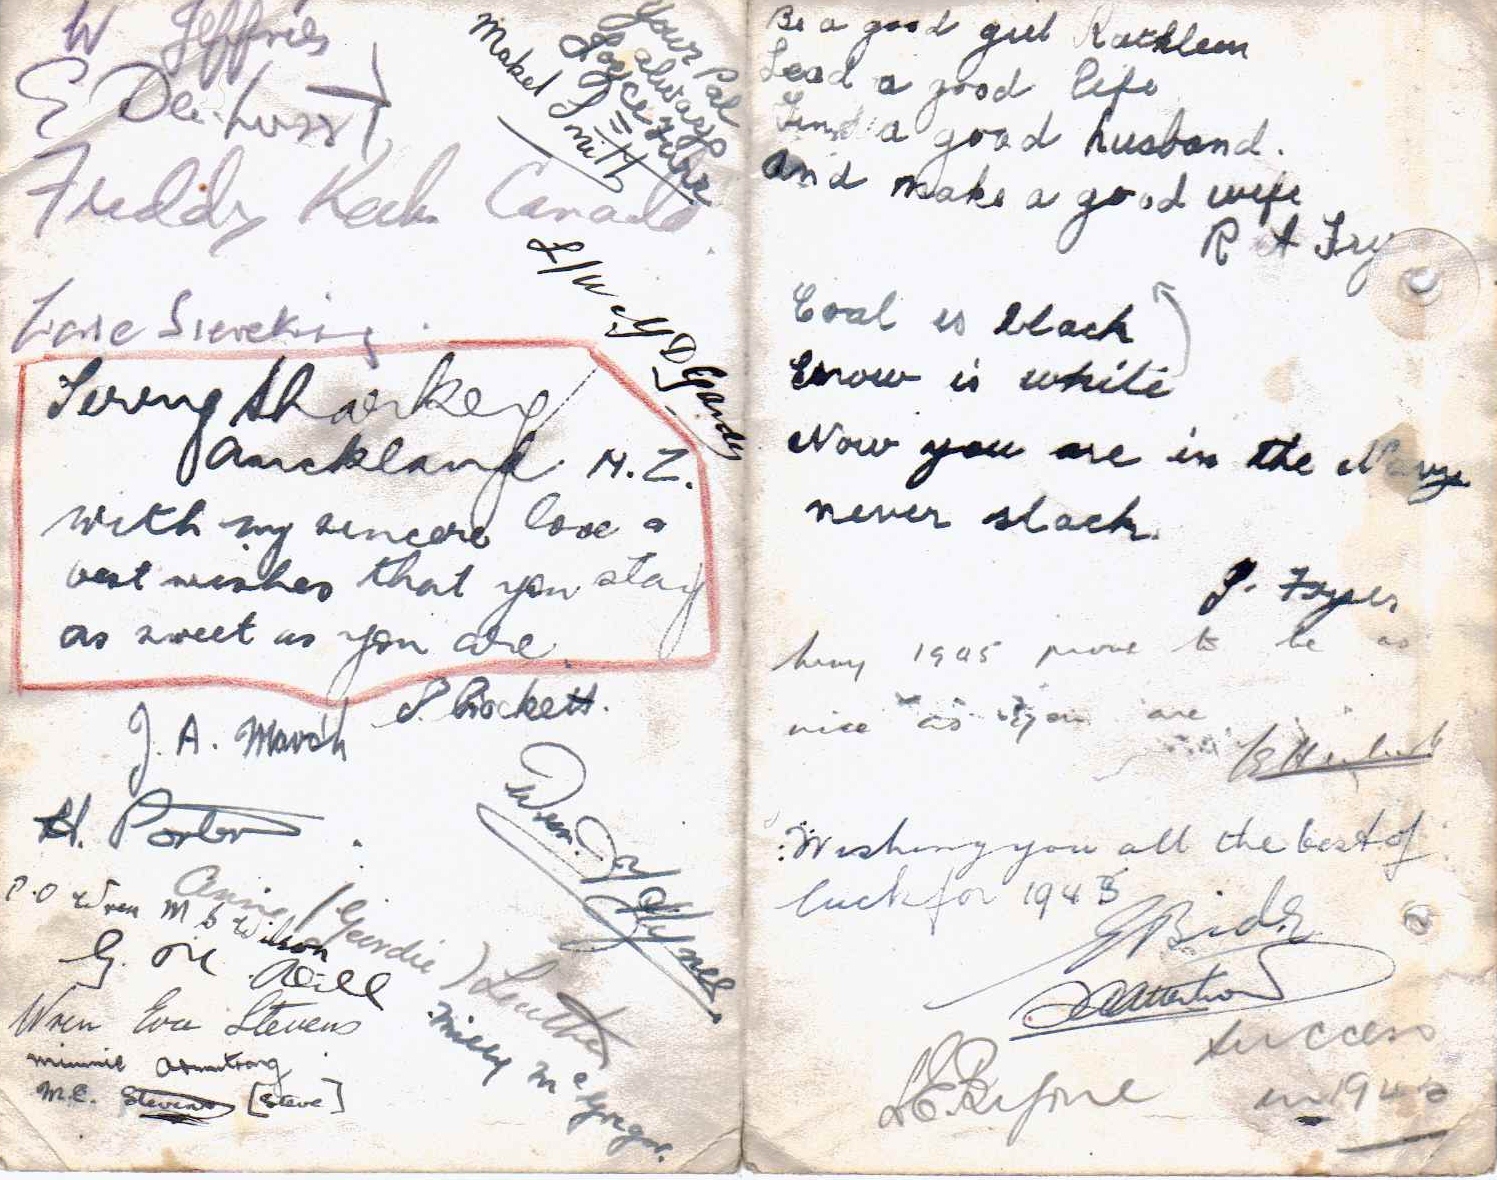 W Jeffries
E
Freddy Canada
Your Pal
always
Joyce
Mabel Smith
Sharkey
Auckland N.Z.
with my sincere love &
best wishes that you stay
as sweet as you are.
P. Crockett.
J. A. Marsh
H. Porter
P.O Wren M S Wilson
Annie (Geordie)
Wren Joy
Wren Eva Stevens
Minnie Armstrong
M.E. Stevens [Steve]
Milly
Be a good girl Kathleen
Lead a good life
Find a good husband.
And make a good wife
R A Fry
Coal is black
Snow is white
Now you are in the Navy
never slack.
J. Fryer
may 1945 prove to be as
nice as you are
Wishing you all the best of
luck for 1945
success
in 1945